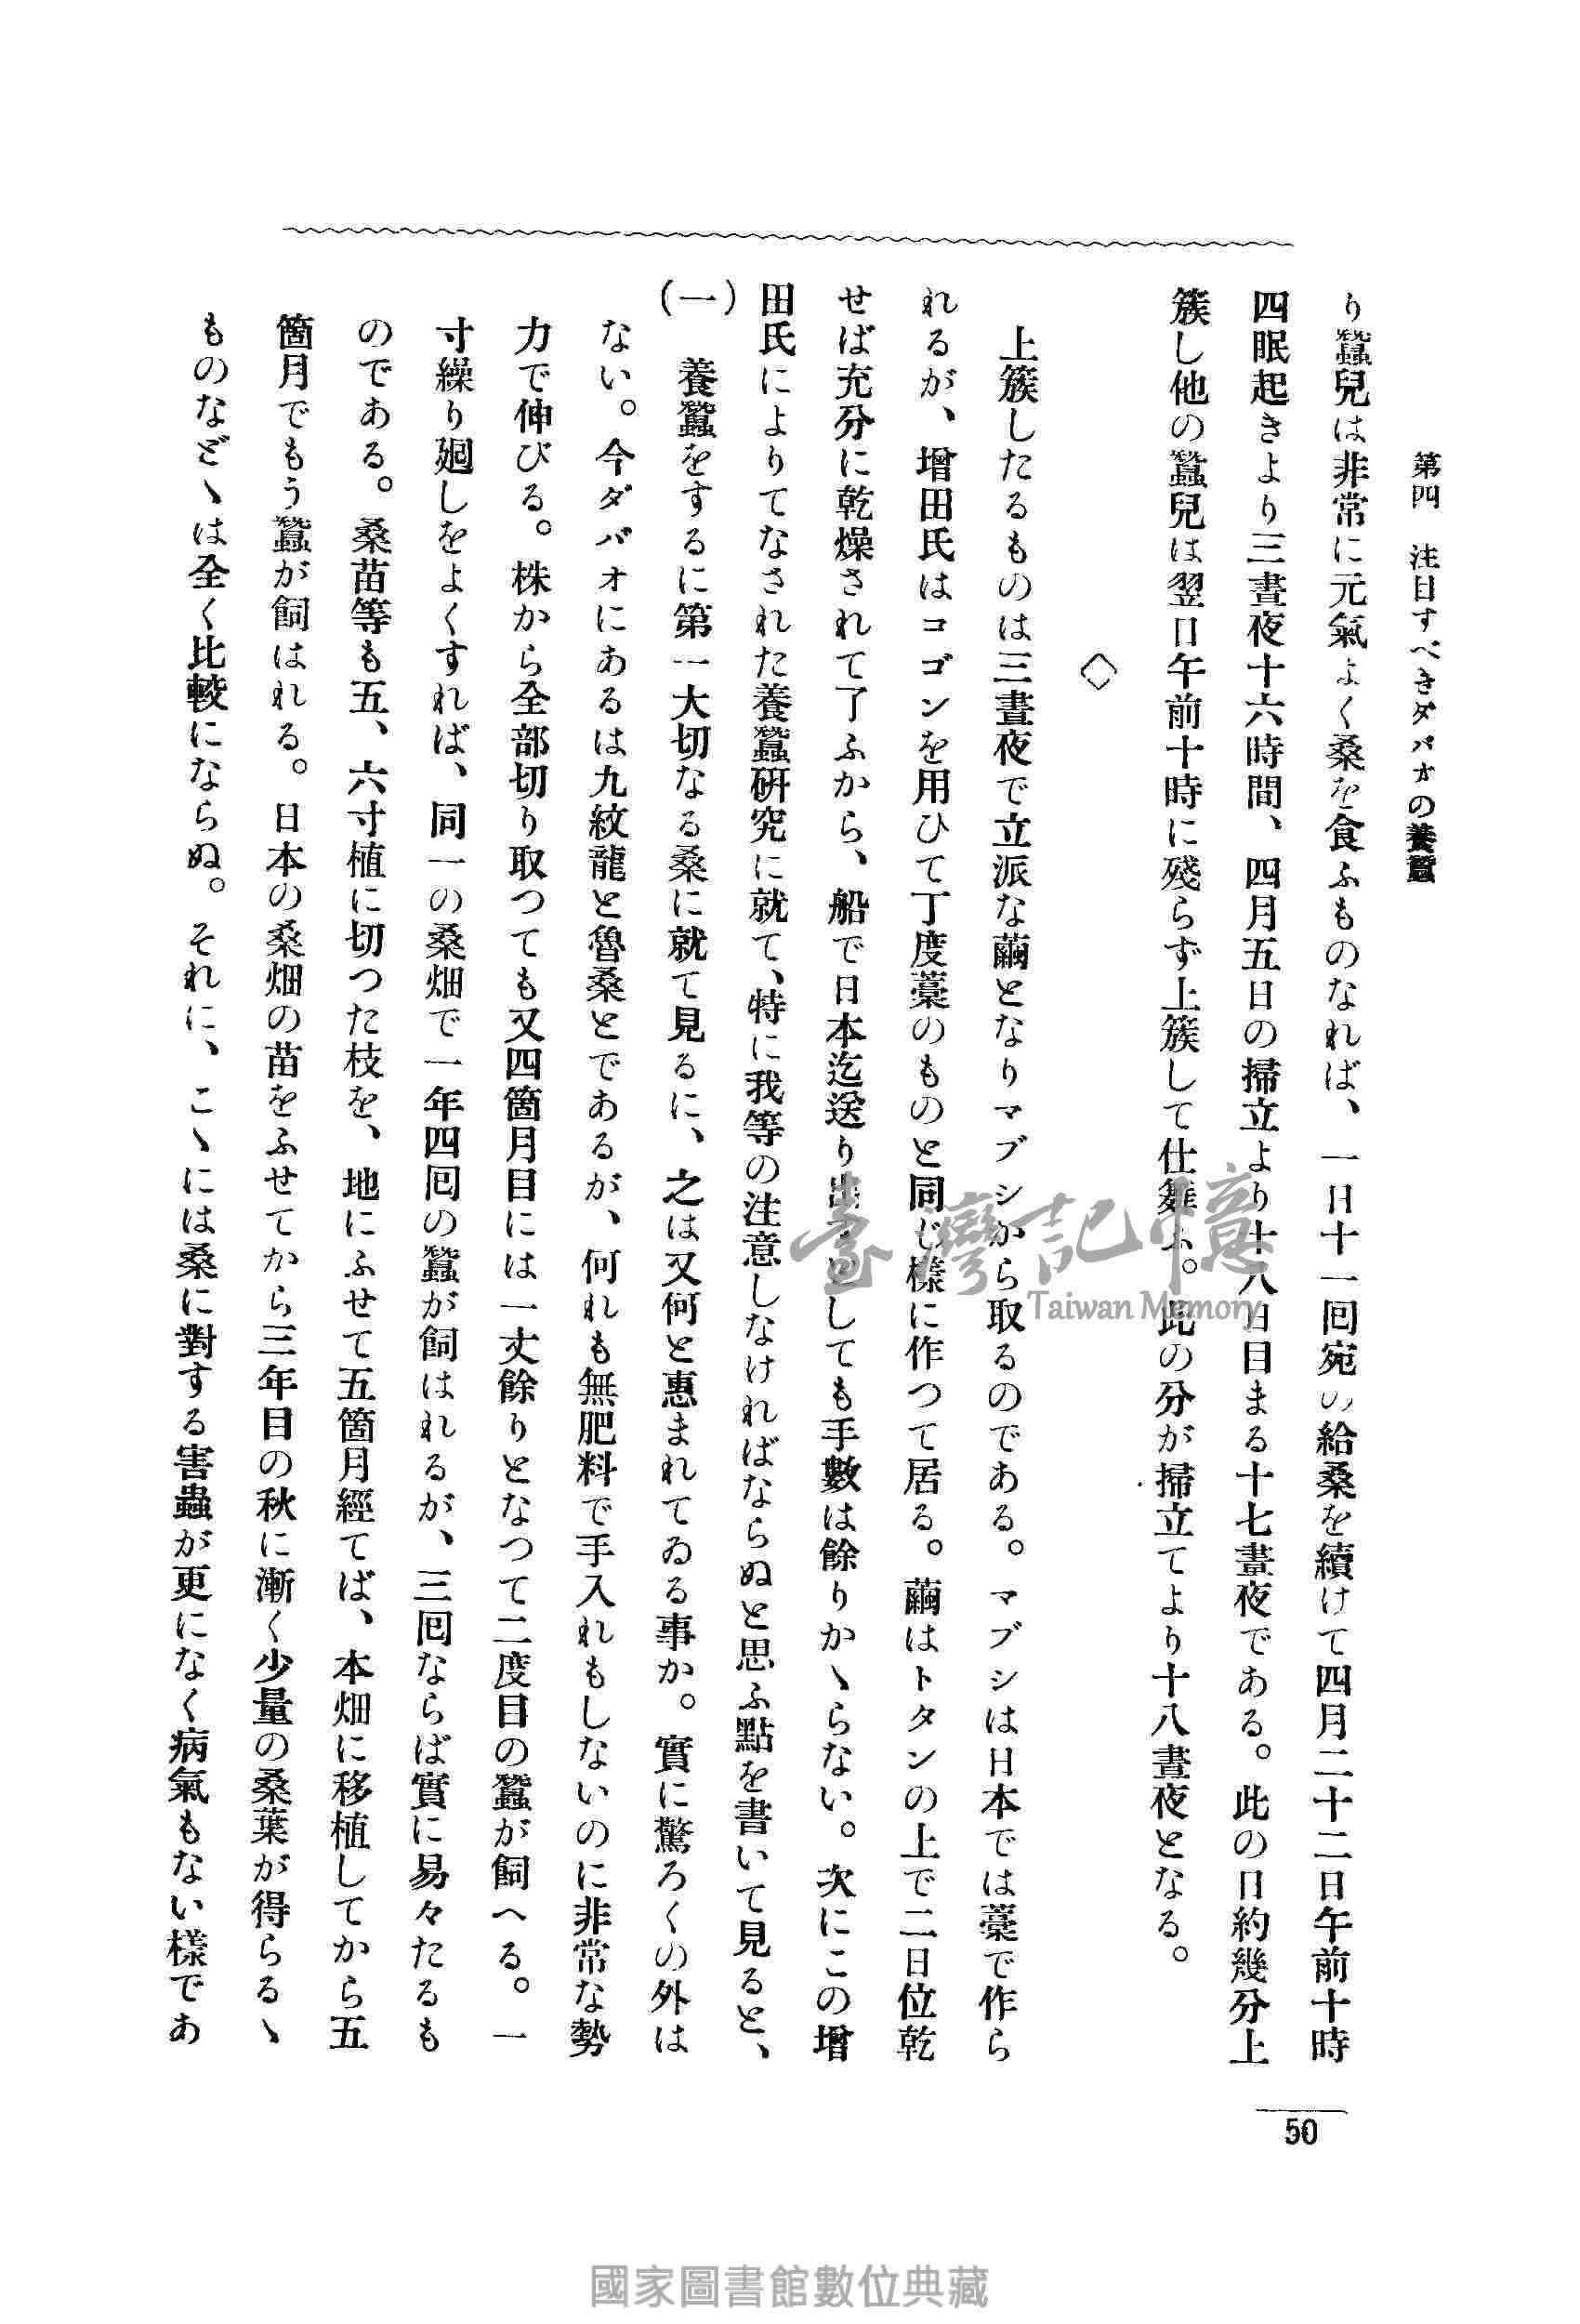 第四　注目すべきダバオの養蠶
り蠶兒は非常に元氣よく桑を食ふものなれば、一日十一囘宛の給桑を續けて四月二十二日午前十時
四眠起きより三晝夜十六時間、四月五日の掃立より十八日目まる十七晝夜である。此の日約幾分上
簇し他の蠶兒は翌日午前十時に殘らず上簇して仕舞ふ。此の分が掃立てより十八晝夜となる。
◇
上簇したるものは三晝夜で立派な繭となりマブシから取るのである。マブシは日本では藁で作ら
れるが、增田氏はコゴンを用ひて丁度藁のものと同じ樣に作つて居る。繭はトタンの上で二日位乾
せば充分に乾燥されて了ふから、船で日本迄送り出すとしても手數は餘りかゝらない。次にこの增
田氏によりてなされた養蠶硏究に就て、特に我等の注意しなければならぬと思ふ點を書いて見ると、
(一)　養蠶をするに第一大切なる桑に就て見るに、之は又何と惠まれてゐる事か。實に驚ろくの外は
ない。今ダバオにあるは九紋龍と魯桑とであるが、何れも無肥料で手入れもしないのに非常な勢
力で伸びる。株から全部切り取つても又四箇月目には一丈餘りとなつて二度目の蠶が飼へる。一
寸繰り廻しをよくすれば、同一の桑畑で一年四囘の蠶が飼はれるが、三囘ならば實に易々たるも
のである。桑苗等も五、六寸植に切つた枝を、地にふせて五箇月經てば、本畑に移植してから五
箇月でもう蠶が飼はれる。日本の桑畑の苗をふせてから三年目の秋に漸く少量の桑葉が得らるゝ
ものなどゝは全く比較にならぬ。それに、こゝには桑に對する害蟲が更になく病氣もない樣であ
50
臺灣記憶
Taiwan Memory
國家圖書館數位典藏